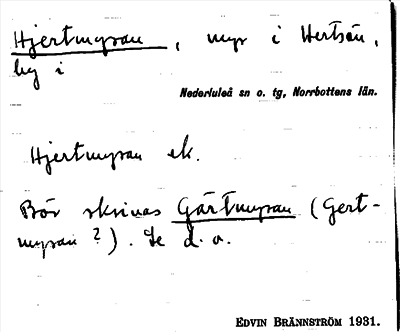 Hjertmyran, myr i Hertsön,
by i
Nederluleå sn o. tg, Norrbottens län.
Hjertmyran ek.
Bör skrivas Gärtmyran (Gert-
myran ?). Se d. o.
EDVIN BRÄNNSTRÖM 1931.